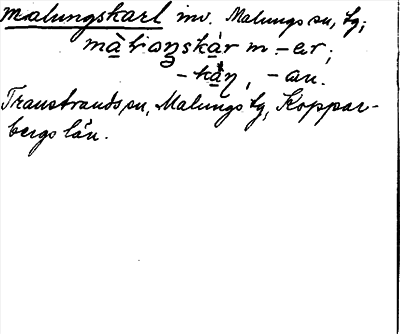 malungskarl inv. Malungs sn, tg;
m. -er;
-an.
Transtrands sn, Malungs tg, Koppar-
bergs län.